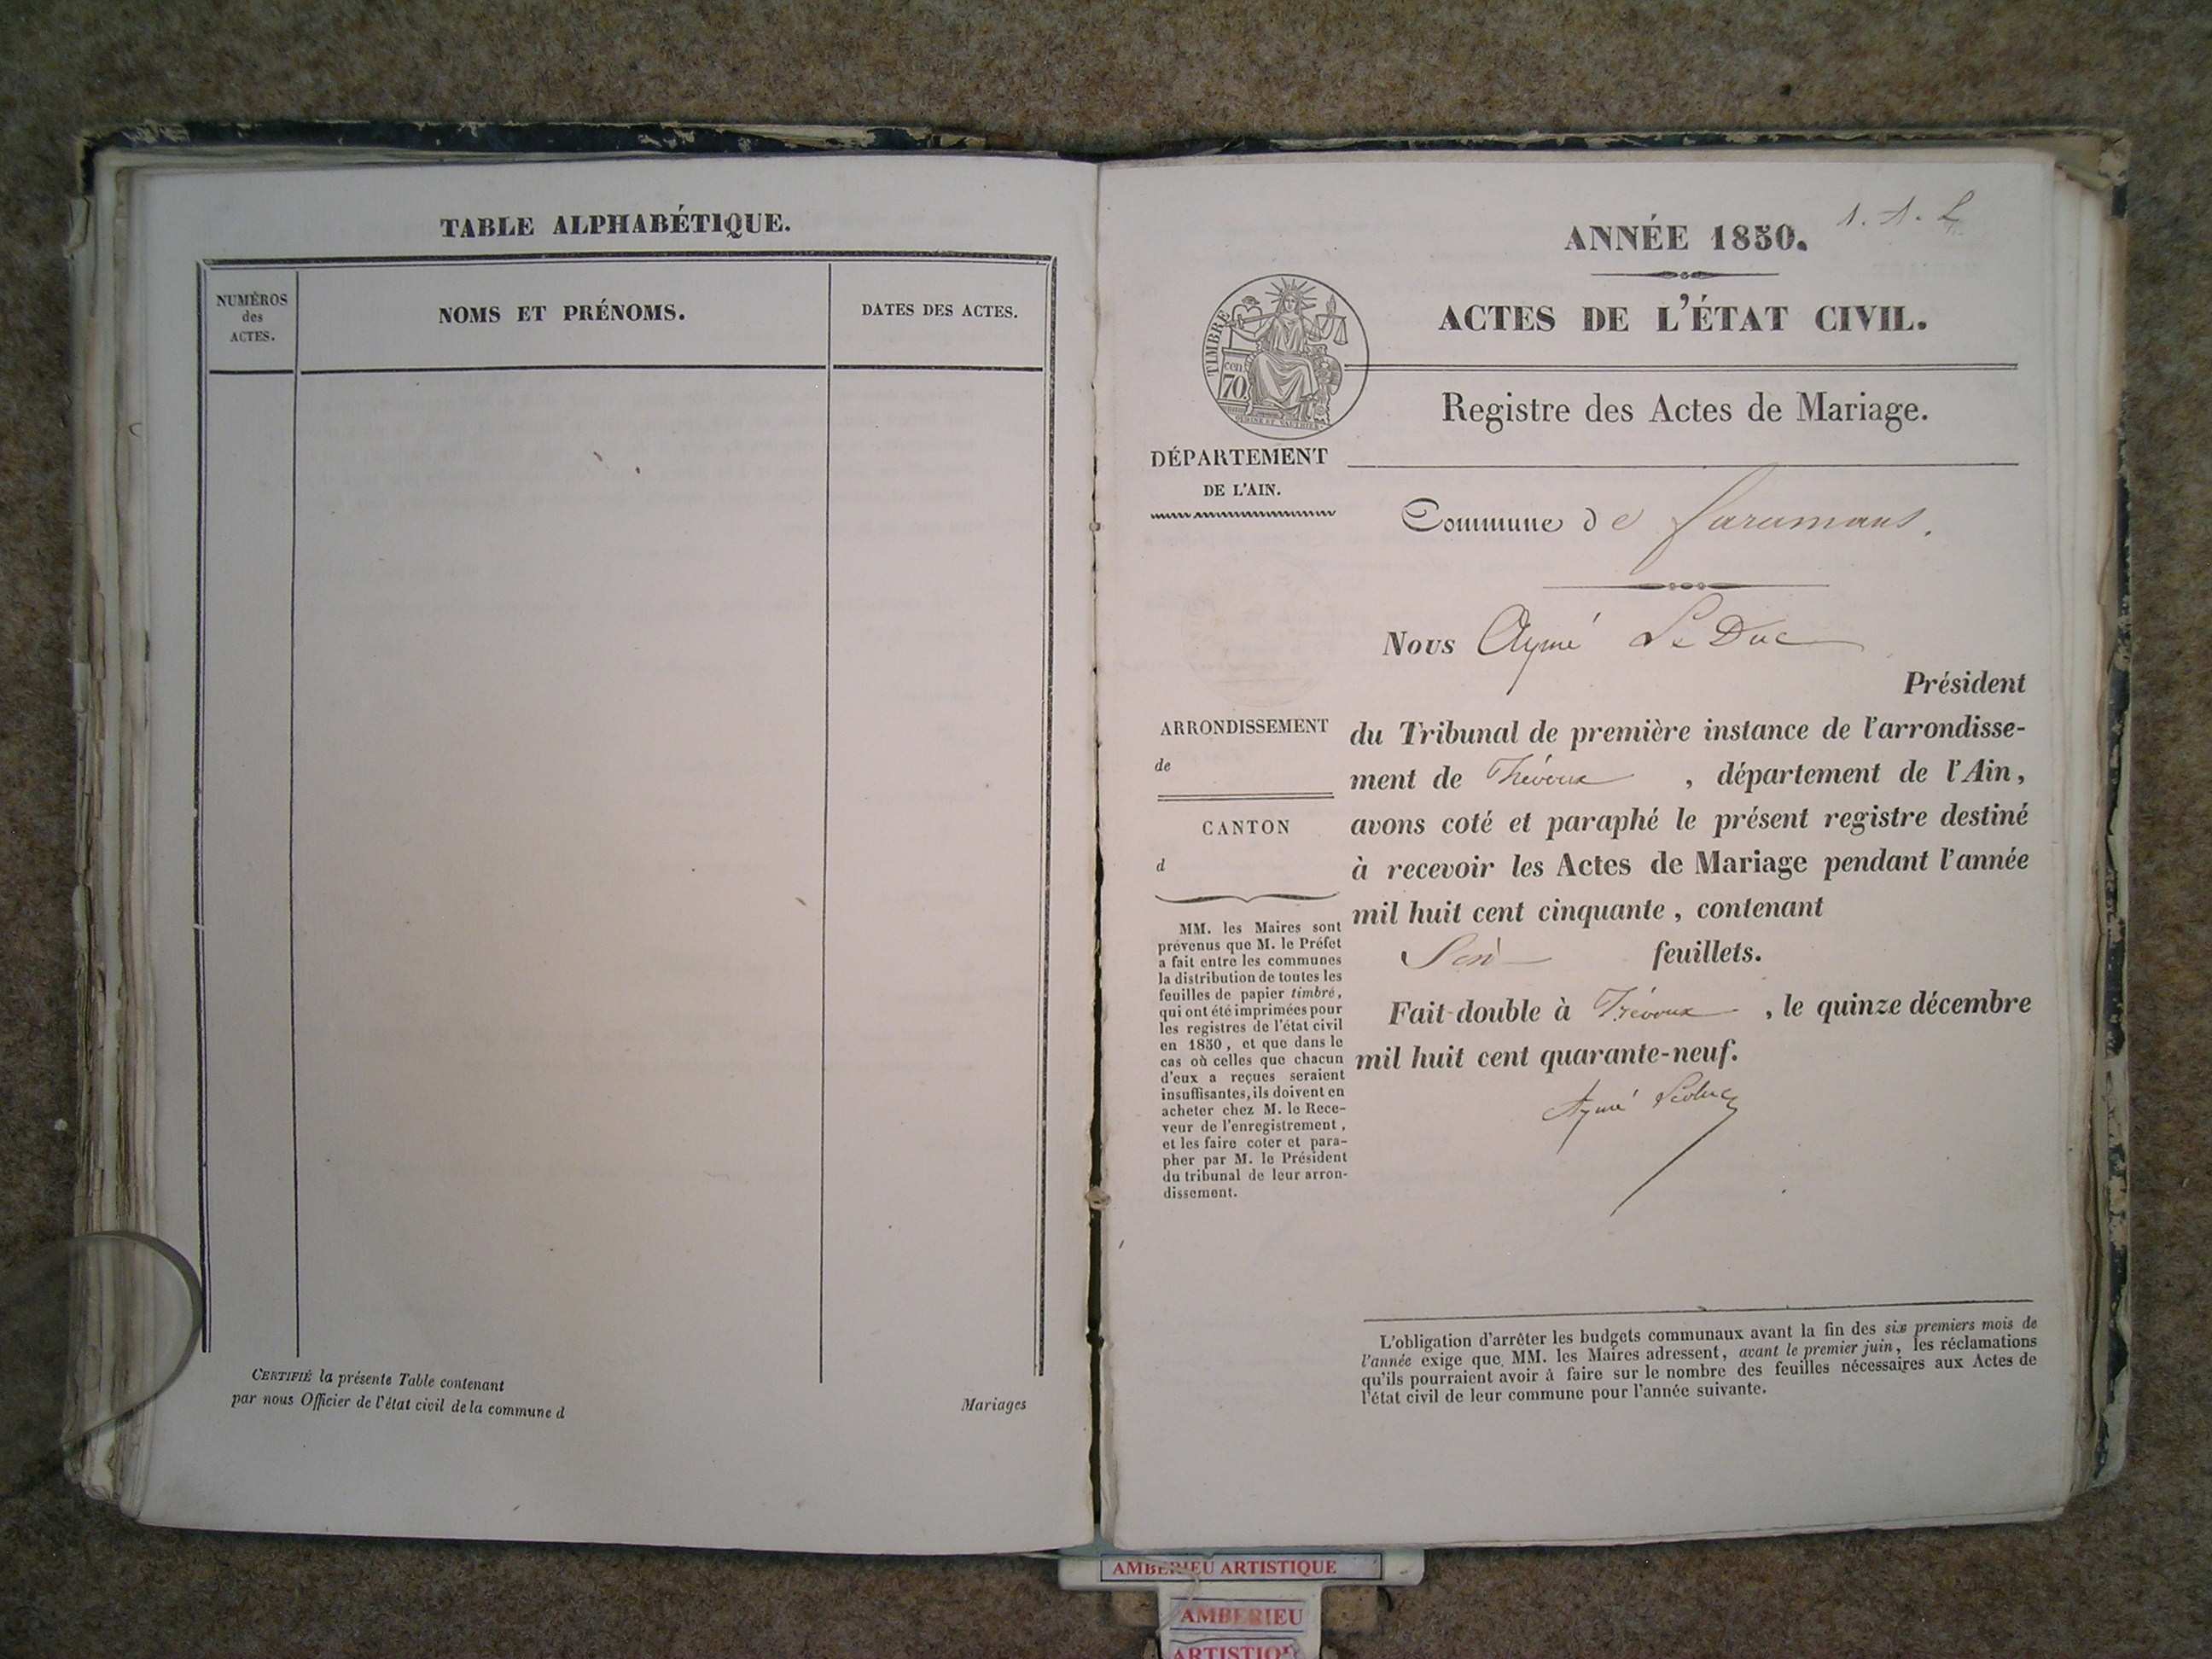 TABLE ALPHABÉTIQUE.
NUMÉROS
des
ACTES.
NOMS ET PRÉNOMS.
DATES DES ACTES.
CERTIFIÉ la présente Table contenant
par nous Officier de l'état civil de la commune d
Mariages
ANNÉE 1850.
ACTES DE L'ÉTAT CIVIL.
TIMBRE
cen.
70
Registre des Actes de Mariage.
DÉPARTEMENT
DE L'AIN.
Commune de faramans.
Nous Aymé Le Duc
Président
ARRONDISSEMENT
de
CANTON
d
du Tribunal de première instance de l'arrondisse-
ment de Trévoux, département de l'Ain,
avons coté et paraphé le présent registre destiné
à recevoir les Actes de Mariage pendant l'année
mil huit cent cinquante, contenant
feuillets.
Fait double à Trévoux, le quinze décembre
mil huit cent quarante-neuf.
Aymé Leduc
MM. les Maires sont
prévenus que M. le Préfet
a fait entre les communes
la distribution de toutes les
feuilles de papier timbré,
qui ont été imprimées pour
les registres de l'état civil
en 1850, et que dans le
cas où celles que chacun
d'eux a reçues seraient
insuffisantes, ils doivent en
acheter chez M. le Rece-
veur de l'enregistrement,
et les faire coter et para-
pher par M. le Président
du tribunal de leur arron-
dissement.
L'obligation d'arrêter les budgets communaux avant la fin des six premiers mois de
l'année exige que MM. les Maires adressent, avant le premier juin, les réclamations
qu'ils pourraient avoir à faire sur le nombre des feuilles nécessaires aux Actes de
l'état civil de leur commune pour l'année suivante.
AMBERIEU ARTISTIQUE
AMBERIEU
ARTISTIQUE